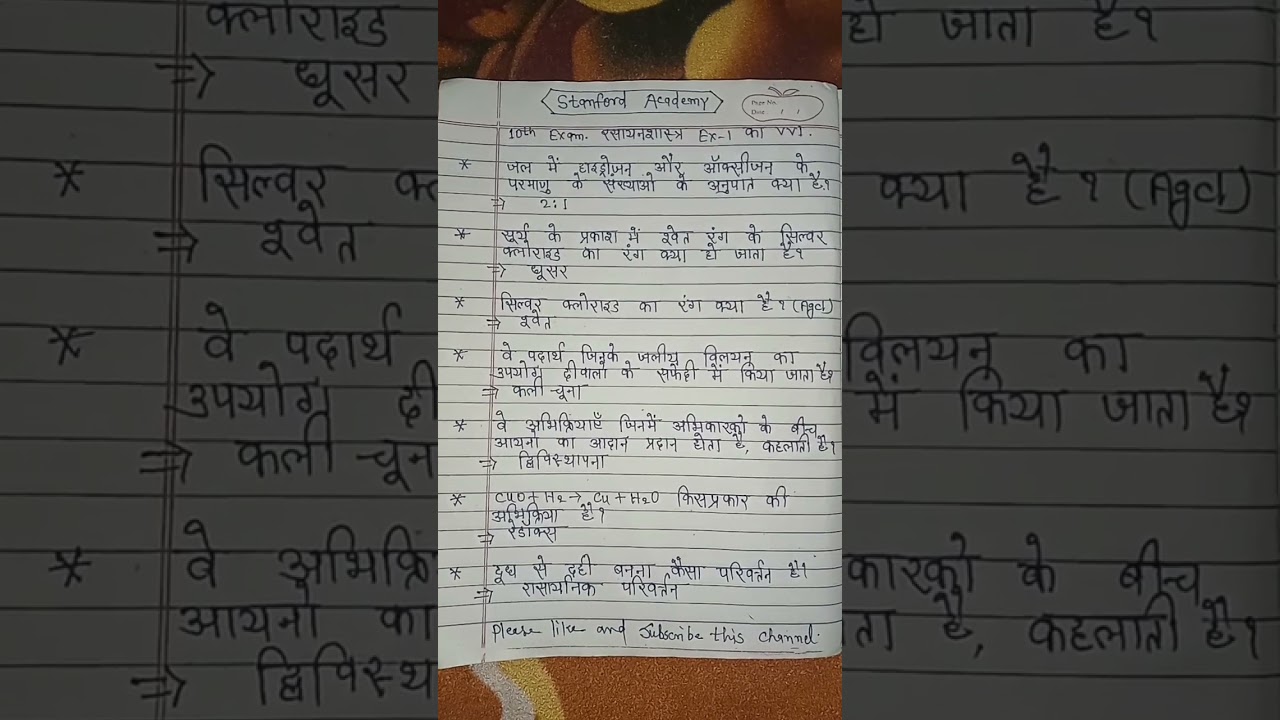 Stanford Academy
Page No.
Date / /
10th Exam. रसायनशास्त्र Ex-1 का VVI.
* जल में हाइड्रोजन और ऑक्सीजन के
परमाणु के संख्याओं के अनुपात क्या है?
⇒ 2:1
* सूर्य के प्रकाश में श्वेत रंग के सिल्वर
क्लोराइड का रंग क्या हो जाता है?
⇒ धूसर
* सिल्वर क्लोराइड का रंग क्या है? (Agcl)
⇒ श्वेत
* वे पदार्थ जिनके जलीय विलयन का
उपयोग दीवालों के सफेदी में किया जाता है?
⇒ कली चूना
* वे अभिक्रियाएँ जिनमें अभिकारकों के बीच
आयनों का आदान प्रदान होता है, कहलाती है?
⇒ द्विविस्थापना
* CuO + H2 → Cu + H2O किसप्रकार की
अभिक्रिया है?
⇒ रेडॉक्स
* दूध से दही बनना कैसा परिवर्तन है?
⇒ रासायनिक परिवर्तन
Please like and Subscribe this channel.